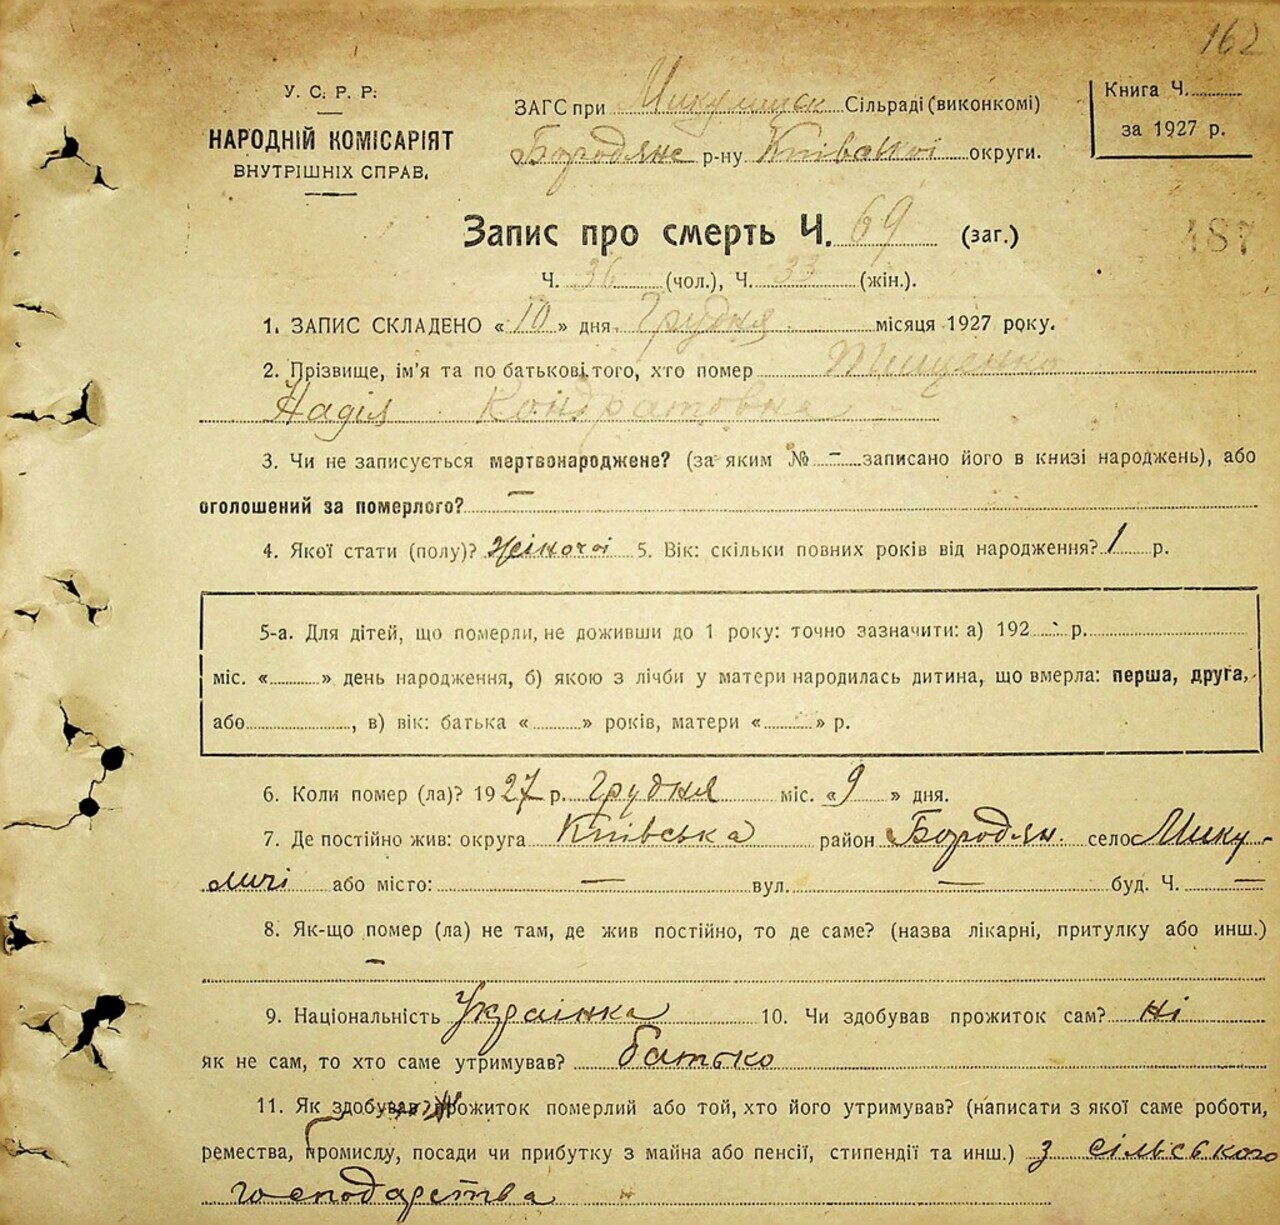 162
У. С. Р. Р.
НАРОДНІЙ КОМІСАРІЯТ
ВНУТРІШНІХ СПРАВ.
ЗАГС при Микулицьк Сільраді (виконкомі)
Бородянс р-ну Київської округи.
Книга Ч.
за 1927 р.
Запис про смерть Ч. 69 (заг.)
187
Ч. 36 (чол.), Ч. 33 (жін.).
1. ЗАПИС СКЛАДЕНО « 10 » дня Грудня місяця 1927 року.
2. Прізвище, ім'я та по батькові того, хто помер Тищенко
Надія Кондратовна
3. Чи не записується мертвонароджене? (за яким № – записано його в книзі народжень), або
оголошений за померлого? –
4. Якої стати (полу)? жіночої 5. Вік: скільки повних років від народження? 1 р.
5-а. Для дітей, що померли, не доживши до 1 року: точно зазначити: а) 192 р.
міс. « » день народження, б) якою з лічби у матери народилась дитина, що вмерла: перша, друга,
або , в) вік: батька « » років, матери « » р.
6. Коли помер (ла)? 1927 р. Грудня міс. « 9 » дня.
7. Де постійно жив: округа Київська район Бородян. село Мику-
личі або місто: — вул. — буд. Ч. —
8. Як-що помер (ла) не там, де жив постійно, то де саме? (назва лікарні, притулку або инш.)
–
9. Національність Українка 10. Чи здобував прожиток сам? ні
як не сам, то хто саме утримував? батько
11. Як здобував прожиток померлий або той, хто його утримував? (написати з якої саме роботи,
ремества, промислу, посади чи прибутку з майна або пенсії, стипендії та инш.) з сільського
господарства